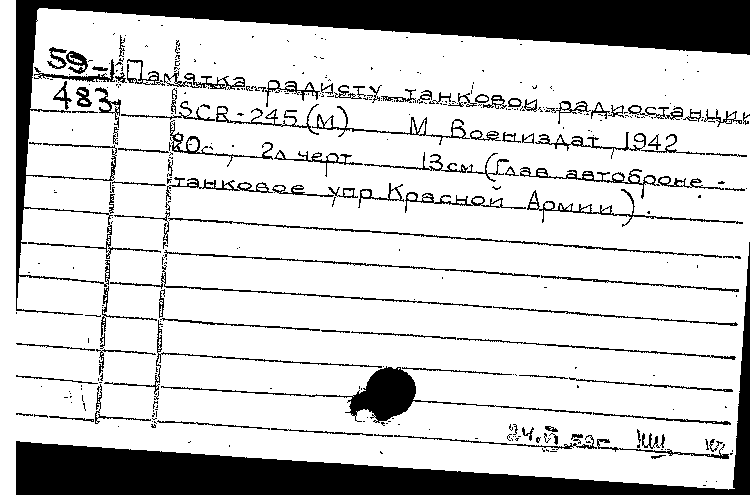 59-1 Памятка радисту танковой радиостанции
483. SCR-245(М). М, Воениздат, 1942
80с.; 2л черт 13см (Глав автоброне-
танковое упр Красной Армии).
24. 59г.